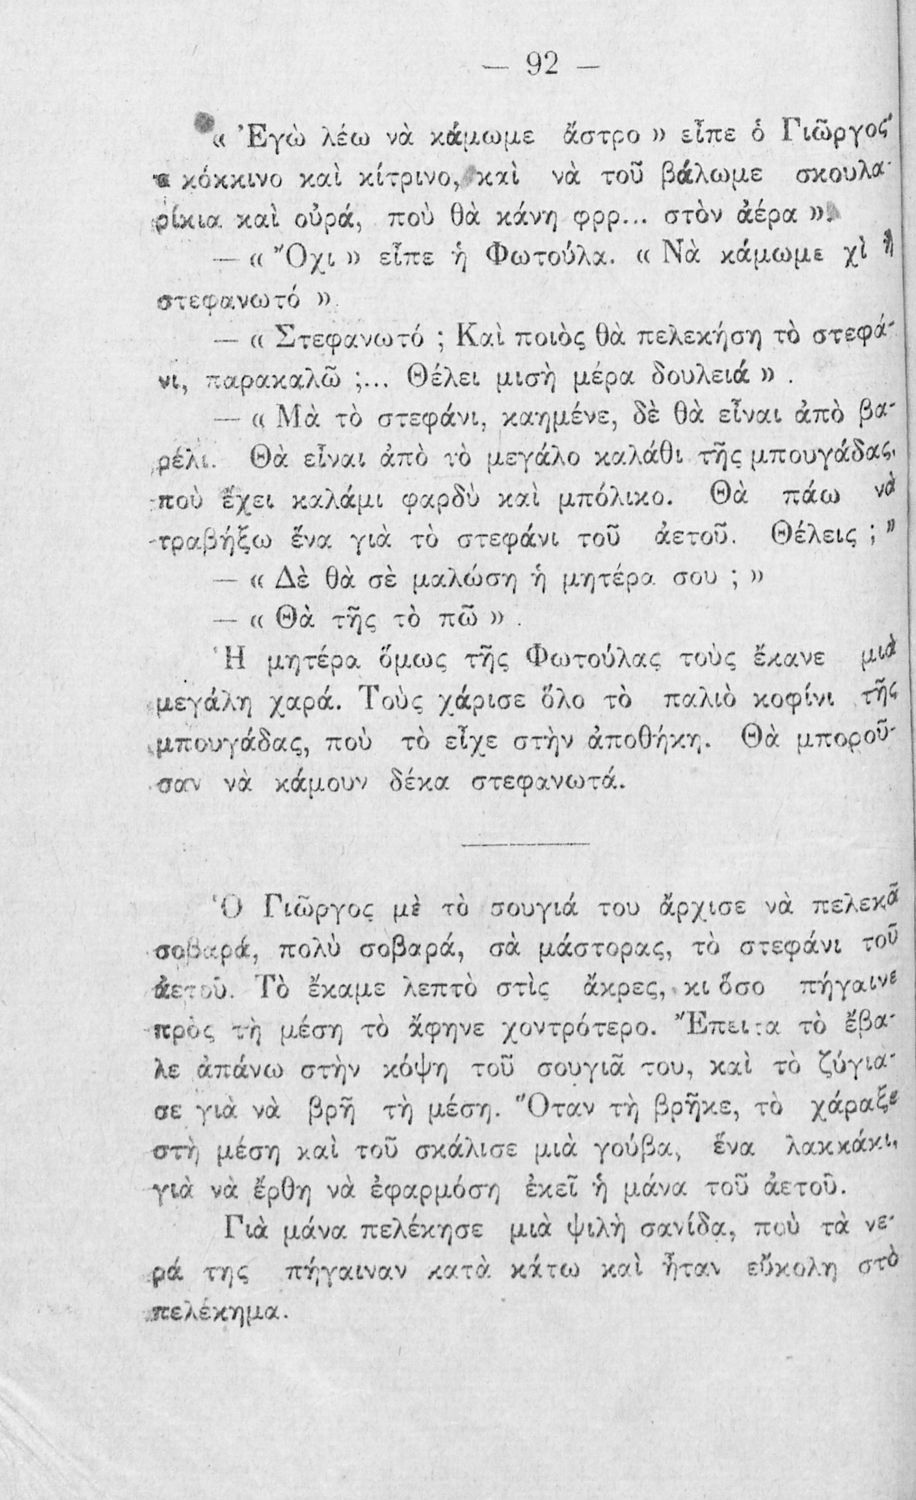 — 92 —
« Ἐγὼ λέω νὰ κάμωμε ἄστρο » εἶπε ὁ Γιῶργος
« κόκκινο καὶ κίτρινο, καὶ νὰ τοῦ βάλωμε σκουλα-
ρίκια καὶ οὐρά, ποὺ θὰ κάνη φρρ... στὸν ἀέρα ».
— « Ὄχι » εἶπε ἡ Φωτούλα. « Νὰ κάμωμε
στεφανωτό ».
— « Στεφανωτό ; Καὶ ποιὸς θὰ πελεκήση τὸ στεφά-
νι, παρακαλῶ ;... Θέλει μισὴ μέρα δουλειά » .
— « Μὰ τὸ στεφάνι, καημένε, δὲ θὰ εἶναι ἀπὸ βα-
ρέλι. Θὰ εἶναι ἀπὸ τὸ μεγάλο καλάθι τῆς μπουγάδας,
ποὺ ἔχει καλάμι φαρδὺ καὶ μπόλικο. Θὰ πάω νὰ
τραβήξω ἕνα γιὰ τὸ στεφάνι τοῦ ἀετοῦ. Θέλεις ; »
— « Δὲ θὰ σὲ μαλώση ἡ μητέρα σου ; »
— « Θὰ τῆς τὸ πῶ » .
Ἡ μητέρα ὅμως τῆς Φωτούλας τοὺς ἔκανε μιὰ
μεγάλη χαρά. Τοὺς χάρισε ὅλο τὸ παλιὸ κοφίνι τῆς
μπουγάδας, ποὺ τὸ εἶχε στὴν ἀποθήκη. Θὰ μποροῦ-
σαν νὰ κάμουν δέκα στεφανωτά.
Ὁ Γιῶργος μὲ τὸ σουγιά του ἄρχισε νὰ πελεκᾶ
σοβαρά, πολὺ σοβαρά, σὰ μάστορας, τὸ στεφάνι τοῦ
ἀετοῦ. Τὸ ἔκαμε λεπτὸ στὶς ἄκρες, κι ὅσο πήγαινε
πρὸς τὴ μέση τὸ ἄφηνε χοντρότερο. Ἔπειτα τὸ ἔβα-
λε ἀπάνω στὴν κόψη τοῦ σουγιᾶ του, καὶ τὸ ζύγια-
σε γιὰ νὰ βρῆ τὴ μέση. Ὅταν τὴ βρῆκε, τὸ χάραξε
στὴ μέση καὶ τοῦ σκάλισε μιὰ γούβα, ἕνα λακκάκι,
γιὰ νὰ ἔρθη νὰ ἐφαρμόση ἐκεῖ ἡ μάνα τοῦ ἀετοῦ.
Γιὰ μάνα πελέκησε μιὰ ψιλὴ σανίδα, ποὺ τὰ νε-
ρά της πήγαιναν κατὰ κάτω καὶ ἦταν εὔκολη στὸ
πελέκημα.